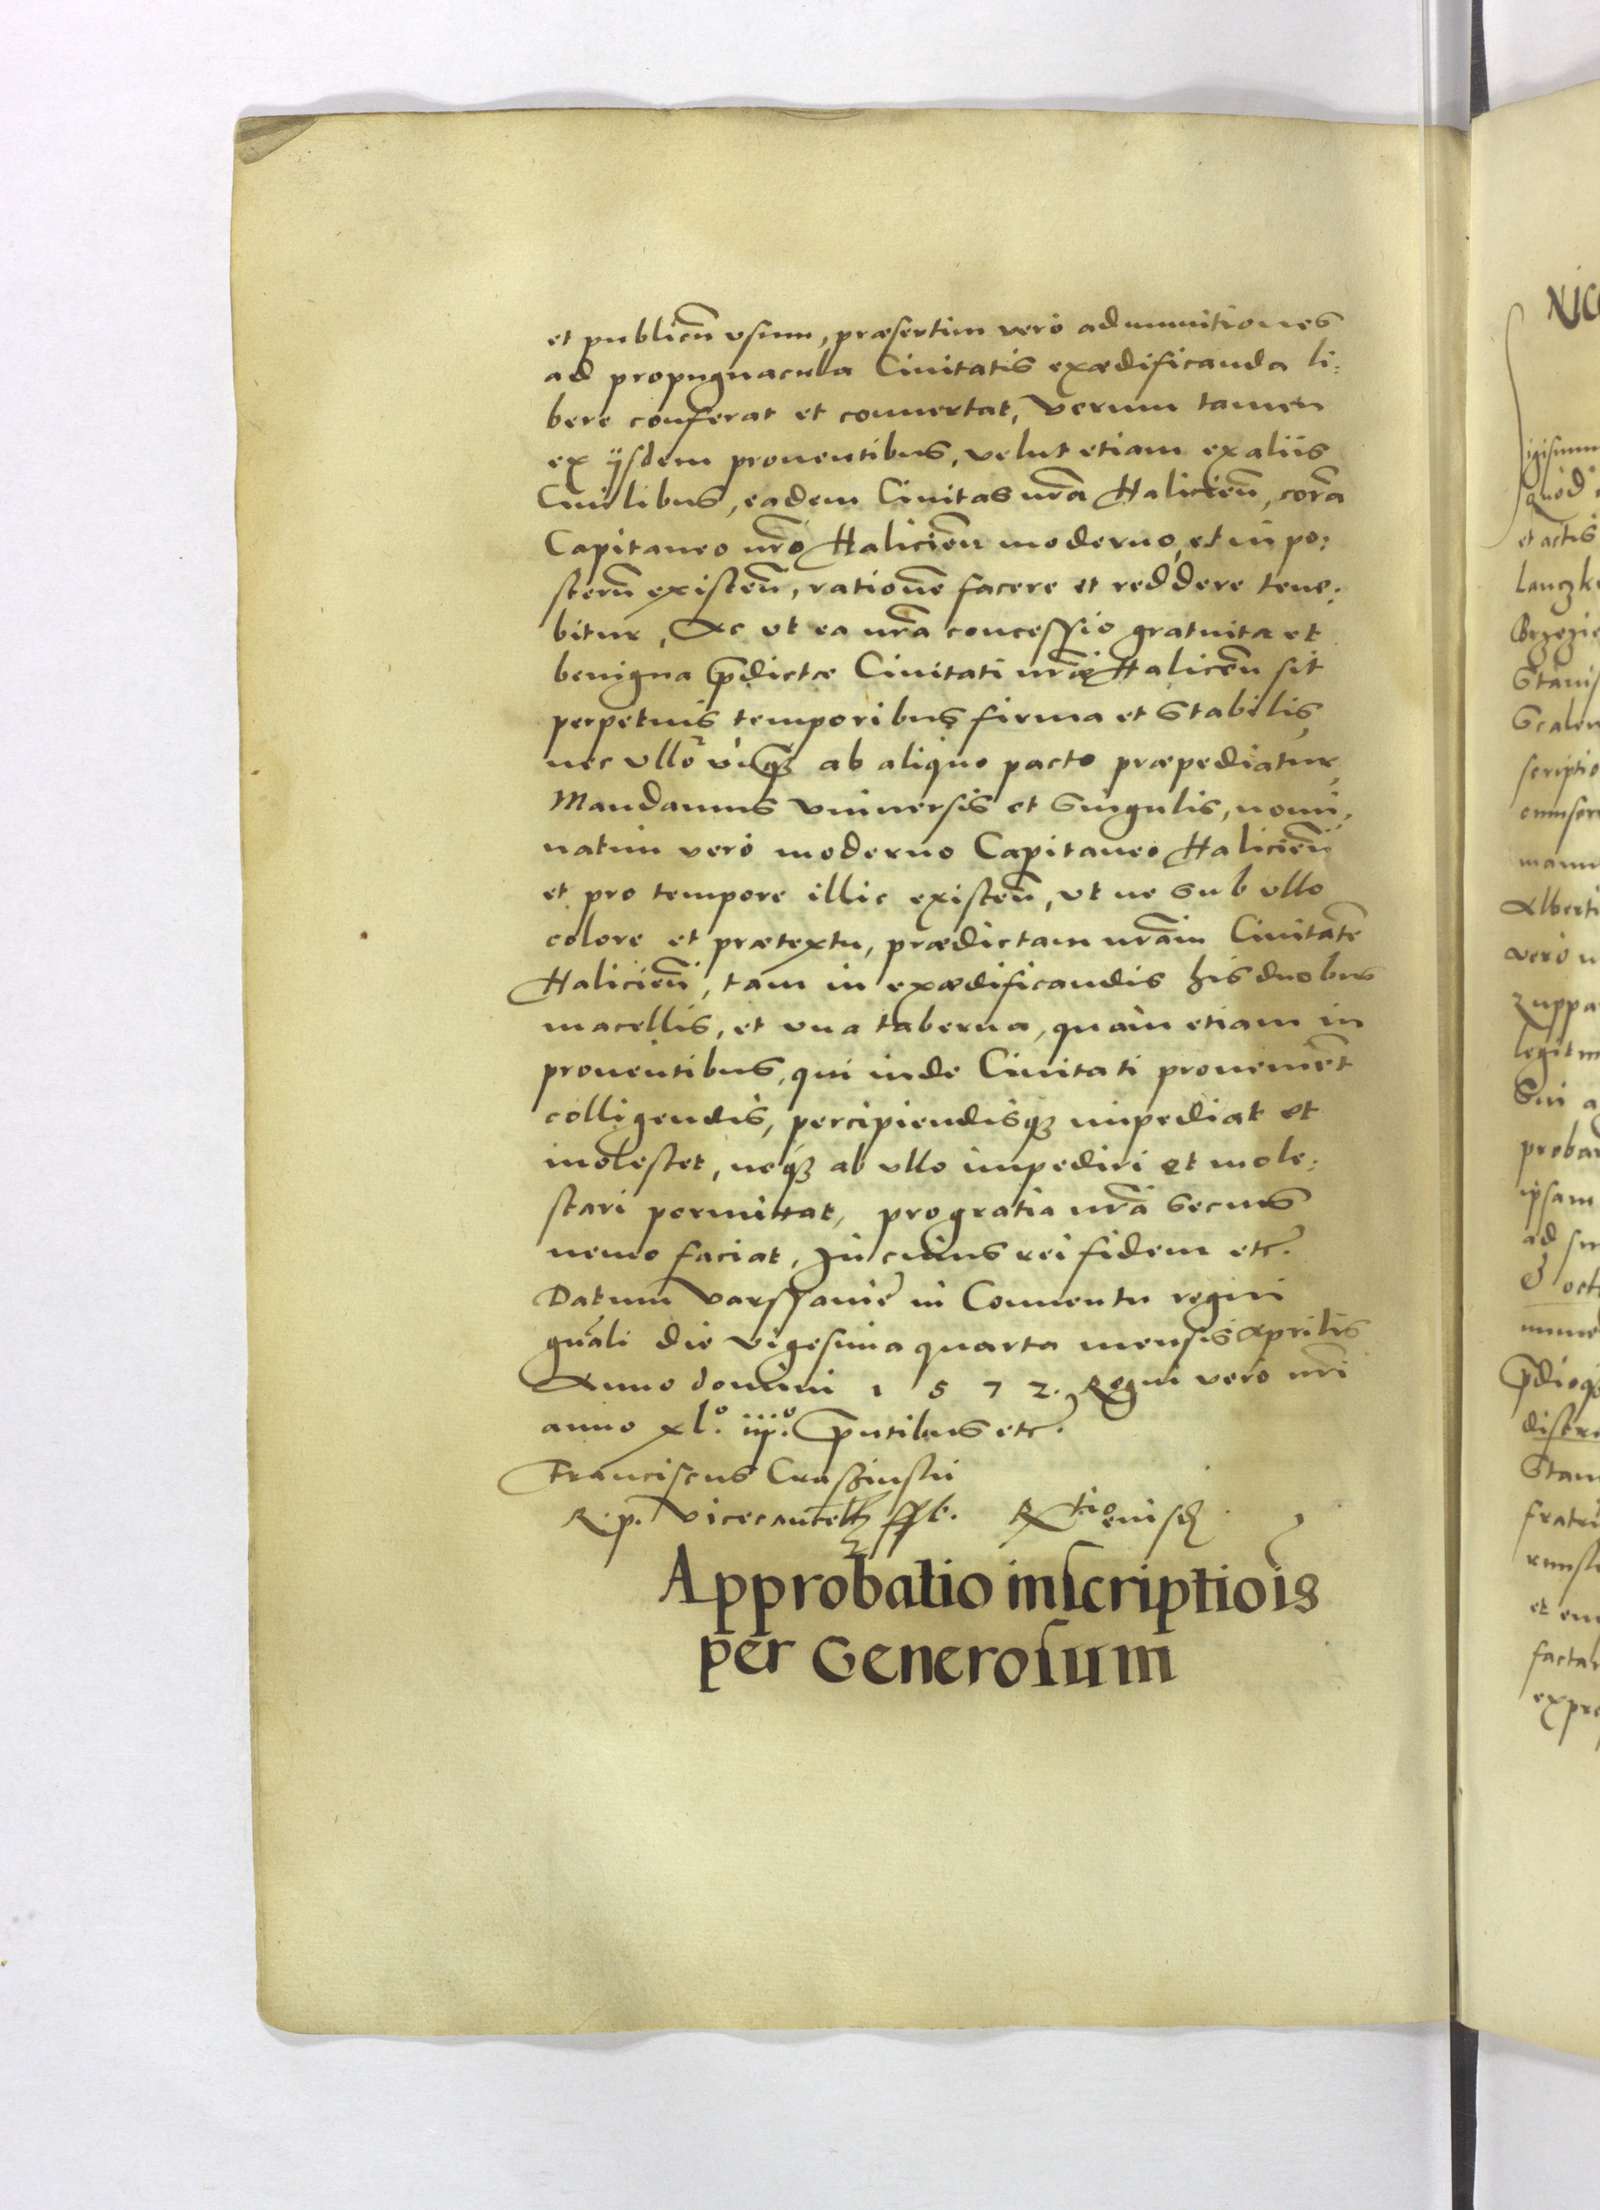 et publicū vsum, præsertim verò ad munitiones
ad propugnacula Ciuitatis exædificanda li:
bere conferat et conuertat, Verum tamen
ex ijsdem prouentibus, velut etiam ex aliis
Ciuilibus, eadem Ciuitas nr̃a Halicień, corã
Capitaneo nrõ Halicień moderno, et in po:
sterū existeń, rationē facere et reddere tene:
bitur, Ac vt ea nrã concessio gratuita et
benigna p̃dictæ Ciuitati nrãe Haliceń sit
perpetuis temporibus firma et Stabilis,
nec vllo vnq̃ ab aliquo pacto præpediatur,
Mandamus Vniuersis et Singulis, nomi,
natim verò moderno Capitaneo Halicień
et pro tempore illic existeń, vt ne Sub vllo
colore et prætextu, prædictam nrãm Ciuitatē
Halicień, tam in exædificandis his duobus
macellis, et vna taberna, quàm etiam in
prouentibus, qui inde Ciuitati prouenient̃
colligendis, percipiendisq₃ impediat et
molestet, neq₃ ab vllo impediri et mole:
stari permittat, pro gratia nrã Secus
nemo faciat, In cuius rei fidem etc̃.
Datum Varssauiȩ in Conuentu regni
gñali die Vigesima quarta mensis Aprilis
Anno domini 1 5 7 2. Regni verò nrĩ
anno xl.º iij.º P̃ntibus etc̃.
Franciscus Craszinskii
R. p. Vicecancell₃ sst. Rtio eiusd
Approbatio inscriptiõis
per Generosum
NIC
igisimu
quod
et actis
Lanczk
Brzezie
Stanis
Scalen
scriptio
cuius
manu
Alberti
verò n
zuppa
legitm
Sui a
proba
ipsam
ad su
& oct
nume
p̃dicq
distri
Stan
fratri
runsk
et eu
facta
expre